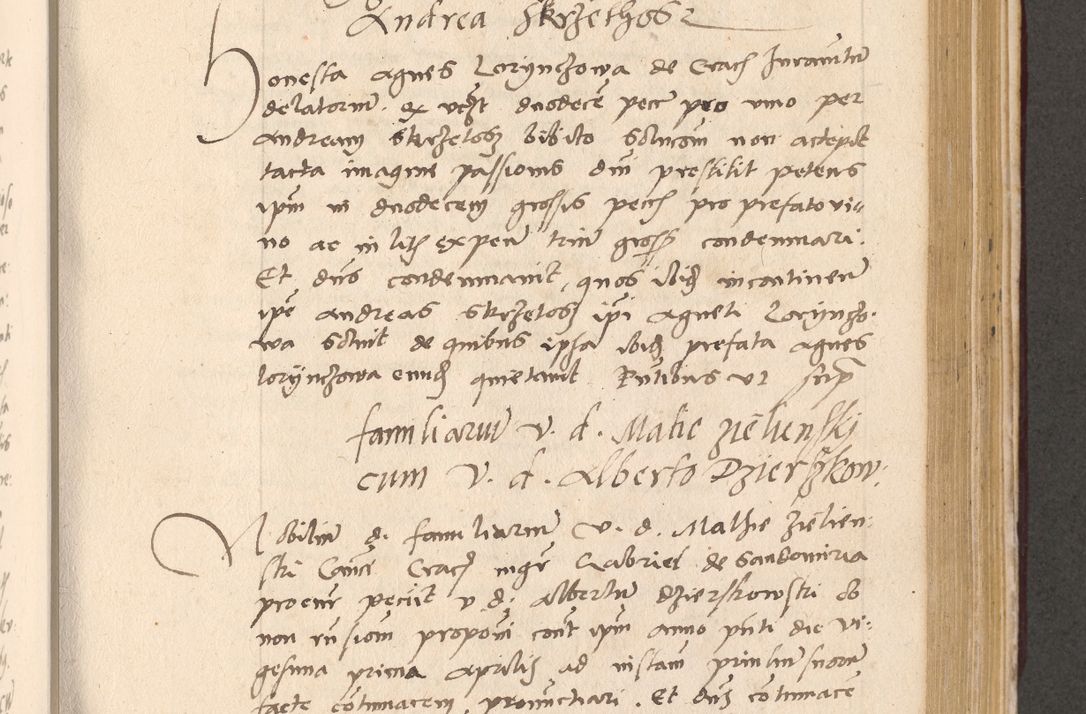 Andrea Skrzethos
Honesta Agnes Lorynczowa de Crac Juramentum
delatorium ex vt duodecem pecc pro vino per
Andream Skrzetos bibito solucom non accepit
tacta imagine passionis dni prestitit petens
ipm in duodecem grossis pecc pro prefato vi-
no ac in litis expen trium gross condemnari.
Et dns condemnavit, quos ibidem incontinen
ipe Andreas Skrzetos ipi Agneti Lorynczo-
wa soluit de quibus ipsa ibidem prefata Agnes
Lorynczowa eund quietavit
familiarum v. d. Mathie Zielienski
cum V. d. Alberto Dzierzkow:
Nobilium d. familiarum V. d. Mathie Zielien:
ski Cance Crac mgr Gabriel de Sandomiria
procur peciit v d. Albertum Dzierskowski ob
non proponi cont ipm anno pnti die vi:
gesima prima Aprilis ad instam
facte contumacem pronunctiari. Et dns contumace